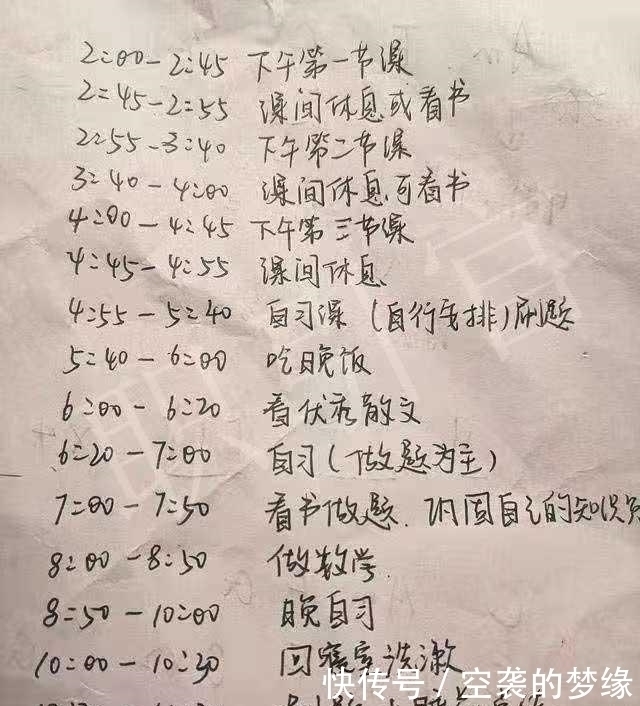 2:00-2:45 下午第一节课
2:45-2:55 课间休息或看书
2:55-3:40 下午第二节课
3:40-4:00 课间休息可看书
4:00-4:45 下午第三节课
4:45-4:55 课间休息
4:55-5:40 自习课(自行安排)刷题
5:40-6:00 吃晚饭
6:00-6:20 看优秀散文
6:20-7:00 自习(做题为主)
7:00-7:50 看书做题.巩固自己的知识
8:00-8:50 做数学
8:50-10:00 晚自习
10:00-10:30 回寝室洗漱
快传号/空袭的梦缘